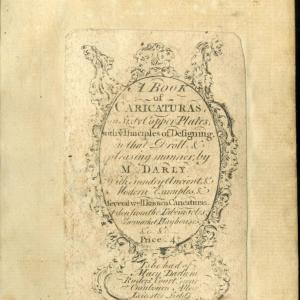 A BOOK
of
CARICATURAS,
on Sixty Copper Plates,
with ye Principles of Designing,
in that Droll &
pleasing manner, by
M. DARLY
With sundry Ancient &
Modern Examples &
several well known Caricaturas.
&c &c
Price 4
To be had of
Mary Darly in
Ryders Court, near
Cranbourn Alley
Leicester fields